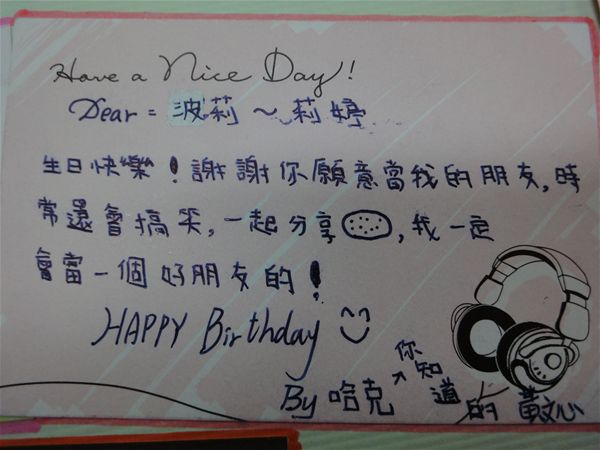 Have a Nice Day!
Dear = 波莉～莉婷
生日快樂！謝謝你願意當我的朋友,時
常還會搞笑,一起分享 ,我一定
會當一個好朋友的！
HAPPY Birthday
By 哈克 你知道的 黃文心